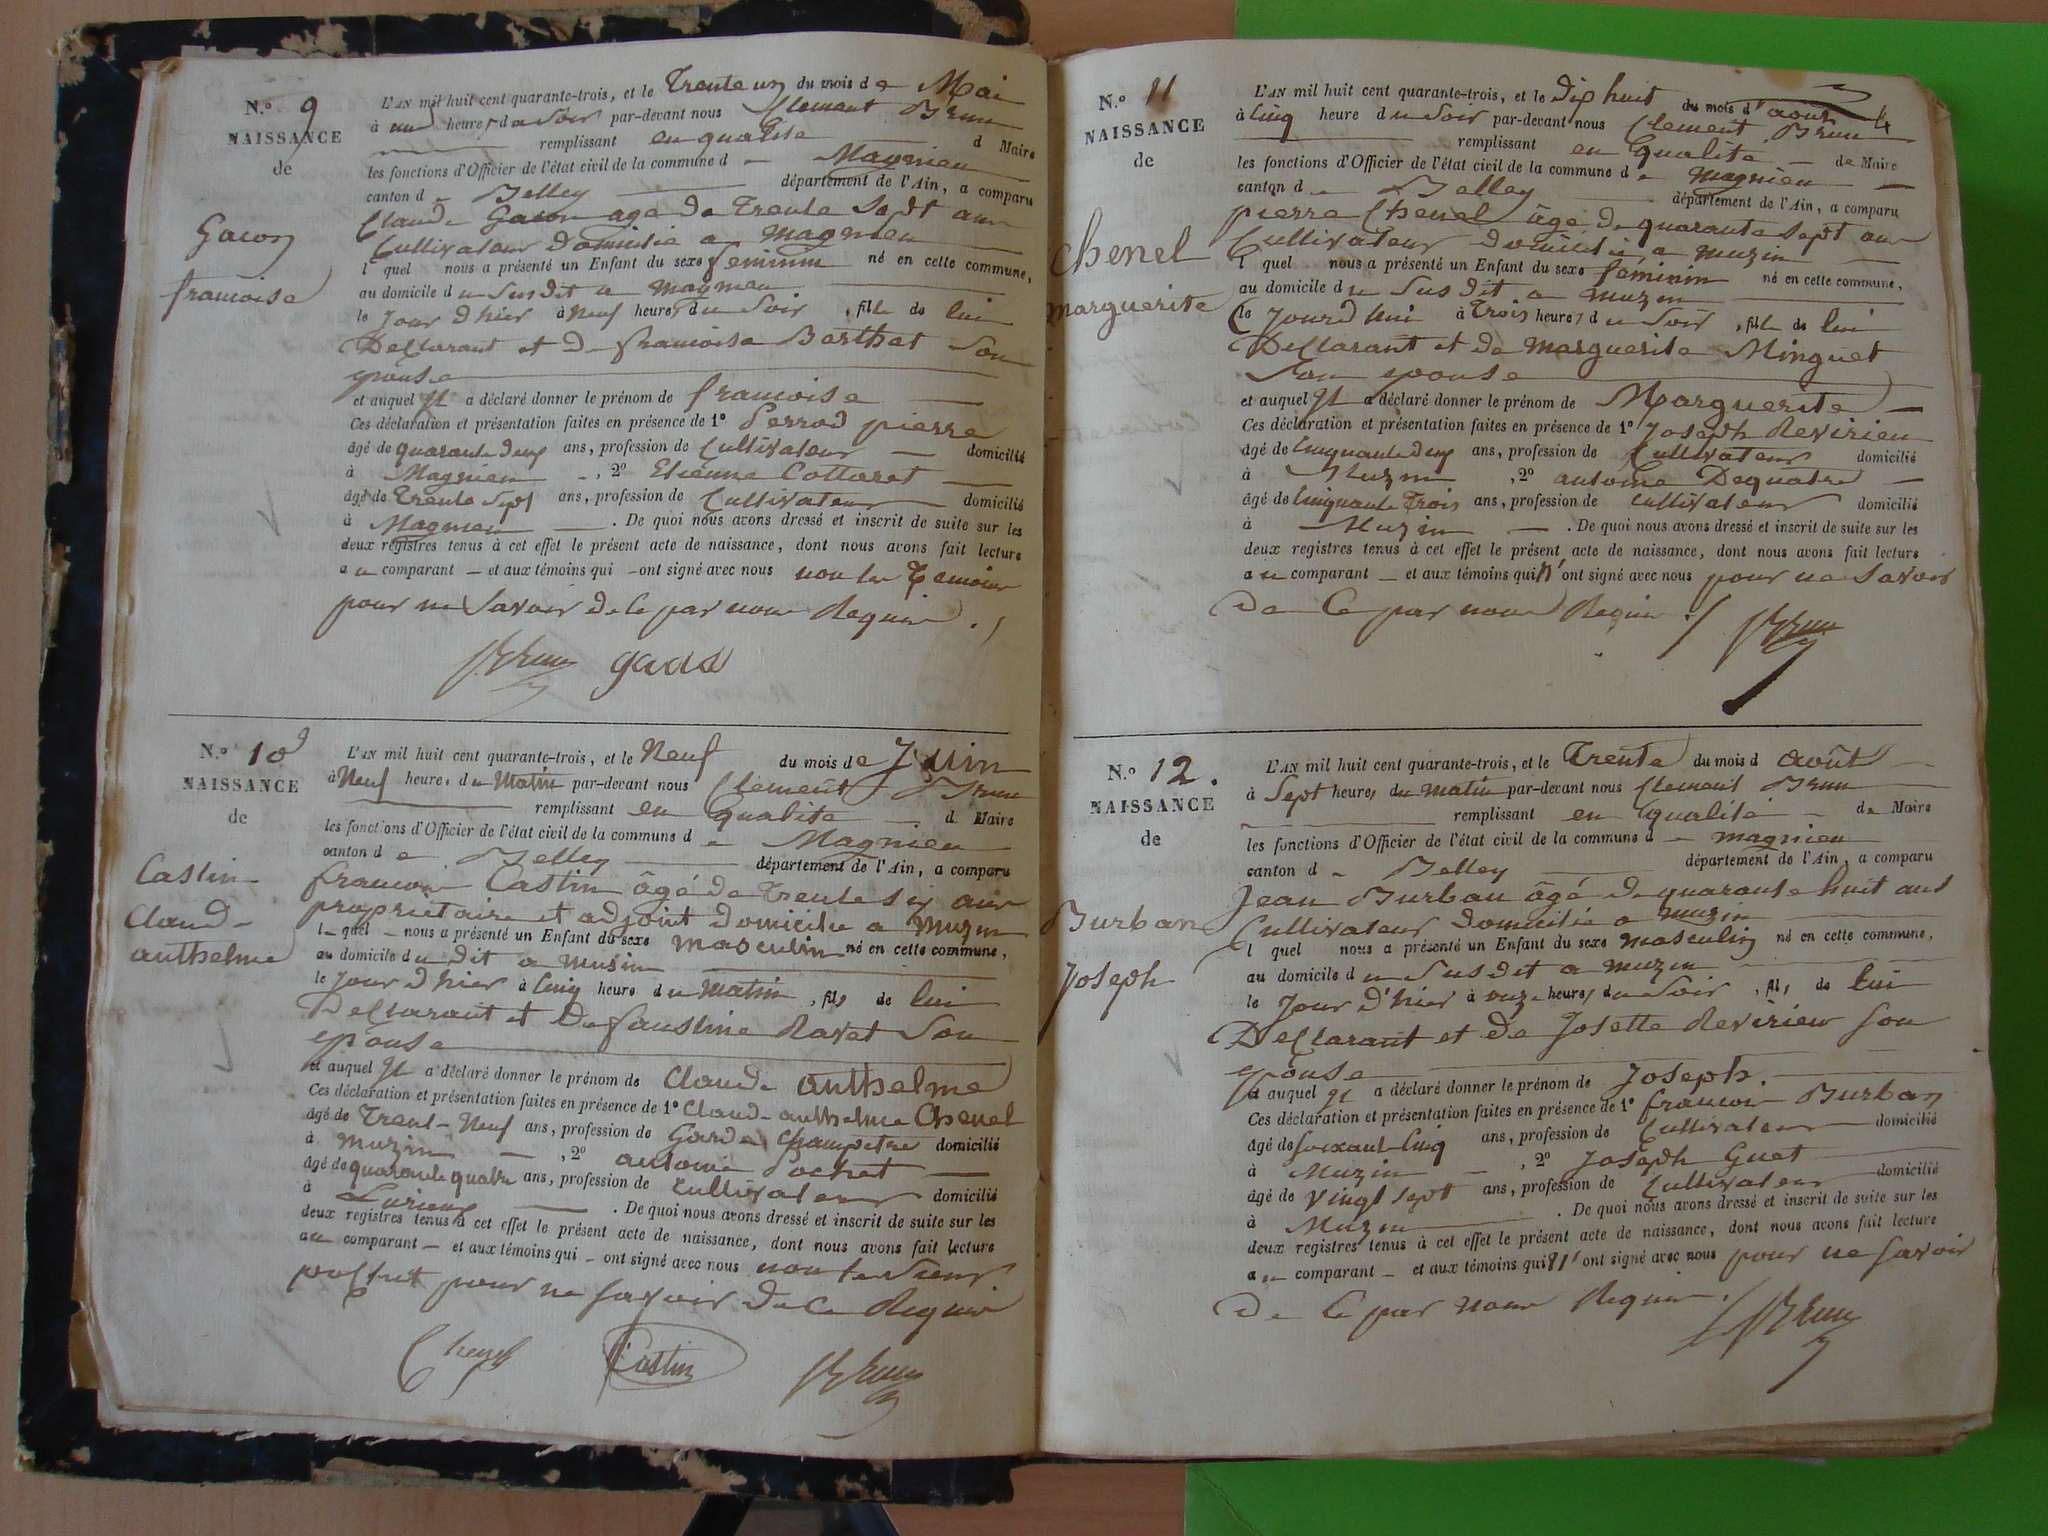 N.º 9
NAISSANCE
de
Gacon
francoise
L'AN mil huit cent quarante-trois, et le Trente un du mois de Mai
à une heure, du Soir par-devant nous Clement Brun
remplissant en qualité d Maire
les fonctions d'Officier de l'état civil de la commune de Magnieu
canton de Belley département de l'Ain, a comparu
Claude Gacon age de Trente Sept ans
Cultivateur domicilié a magnieu
lequel nous a présenté un Enfant du sexe feminin né en cette commune,
au domicile du Susdit a magnieu
le Jour d'hier à Neuf heures du Soir, fille de lui
Declarant et de francoise Berthet Son
epouse
et auquel Il a déclaré donner le prénom de francoise
Ces déclaration et présentation faites en présence de 1º Perrod pierre
âgé de quarante deux ans, profession de Cultivateur domicilié
à Magnieu, 2º Etienne Cottaret
âgé de Trente Sept ans, profession de Cultivateur domicilié
à Magnieu. De quoi nous avons dressé et inscrit de suite sur les
deux registres tenus à cet effet le présent acte de naissance, dont nous avons fait lecture
au comparant et aux témoins qui ont signé avec nous non les Temoins
pour ne Savoir de Ce par nous Requis ./
Brun
N.º 10
NAISSANCE
de
Castin
Claude
anthelme
L'AN mil huit cent quarante-trois, et le Neuf du mois de Juin
à Neuf heure, du Matin par-devant nous Clement Brun
remplissant en qualité d Maire
les fonctions d'Officier de l'état civil de la commune de Magnieu
canton de Belley département de l'Ain, a comparu
francois Castin âgé de Trente Six ans
proprietaire et adjoint domicilié a Muzin
lequel nous a présenté un Enfant du sexe masculin né en cette commune,
au domicile du dit a musin
le Jour d'hier à Cinq heure du Matin, fils de lui
Declarant et De faustine Ravet Son
epouse
et auquel Il a déclaré donner le prénom de Claude anthelme
Ces déclaration et présentation faites en présence de 1º Claude anthelme Chenel
âgé de Trente-Neuf ans, profession de Garde Champetre domicilié
à muzin, 2º antoine Pochet
âgé de quarante quatre ans, profession de Cultivateur domicilié
à . De quoi nous avons dressé et inscrit de suite sur les
deux registres tenus à cet effet le présent acte de naissance, dont nous avons fait lecture
au comparant et aux témoins qui ont signé avec nous non le Sieur
pochet pour ne Savoir de Ce Requis
Chenel Castin Brun
N.º 11
NAISSANCE
de
Chenel
marguerite
L'AN mil huit cent quarante-trois, et le Dix huit du mois d'aout
à Cinq heure du Soir par-devant nous Clement Brun
remplissant en qualité de Maire
les fonctions d'Officier de l'état civil de la commune de magnieu
canton de Belley département de l'Ain, a comparu
pierre Chenel âgé de quarante sept ans
Cultivateur domicilié a muzin
lequel nous a présenté un Enfant du sexe féminin né en cette commune,
au domicile du Susdit a muzin
le Jourd'hui à Trois heure, du Soir, fille de lui
Declarant et de marguerite Minguet
Son epouse
et auquel Il a déclaré donner le prénom de Marguerite
Ces déclaration et présentation faites en présence de 1º Joseph Revirieu
âgé de Cinquante deux ans, profession de Cultivateur domicilié
à Muzin, 2º antoine Dequatre
âgé de Cinquante Trois ans, profession de Cultivateur domicilié
à Muzin. De quoi nous avons dressé et inscrit de suite sur les
deux registres tenus à cet effet le présent acte de naissance, dont nous avons fait lecture
au comparant et aux témoins qui n'ont signé avec nous pour ne Savoir
de Ce par nous Requis ./ Brun
N.º 12.
NAISSANCE
de
Burban
Joseph
L'AN mil huit cent quarante-trois, et le Trente du mois d août
à Sept heure, du matin par-devant nous Clement Brun
remplissant en qualité de Maire
les fonctions d'Officier de l'état civil de la commune de magnieu
canton de Belley département de l'Ain, a comparu
Jean Burban âgé de quarante huit ans
Cultivateur domicilié a muzin
lequel nous a présenté un Enfant du sexe masculin né en cette commune,
au domicile du Susdit a muzin
le Jour d'hier à onze heure, du Soir, fils de lui
Declarant et de Josette Revirieu Son
epouse
et auquel Il a déclaré donner le prénom de Joseph
Ces déclaration et présentation faites en présence de 1º francois Burban
âgé de Soixante Cinq ans, profession de Cultivateur domicilié
à Muzin, 2º Joseph Guet
âgé de Vingt Sept ans, profession de Cultivateur domicilié
à Muzin. De quoi nous avons dressé et inscrit de suite sur les
deux registres tenus à cet effet le présent acte de naissance, dont nous avons fait lecture
au comparant et aux témoins qui n'ont signé avec nous pour ne Savoir
de Ce par nous Requis ./ Brun